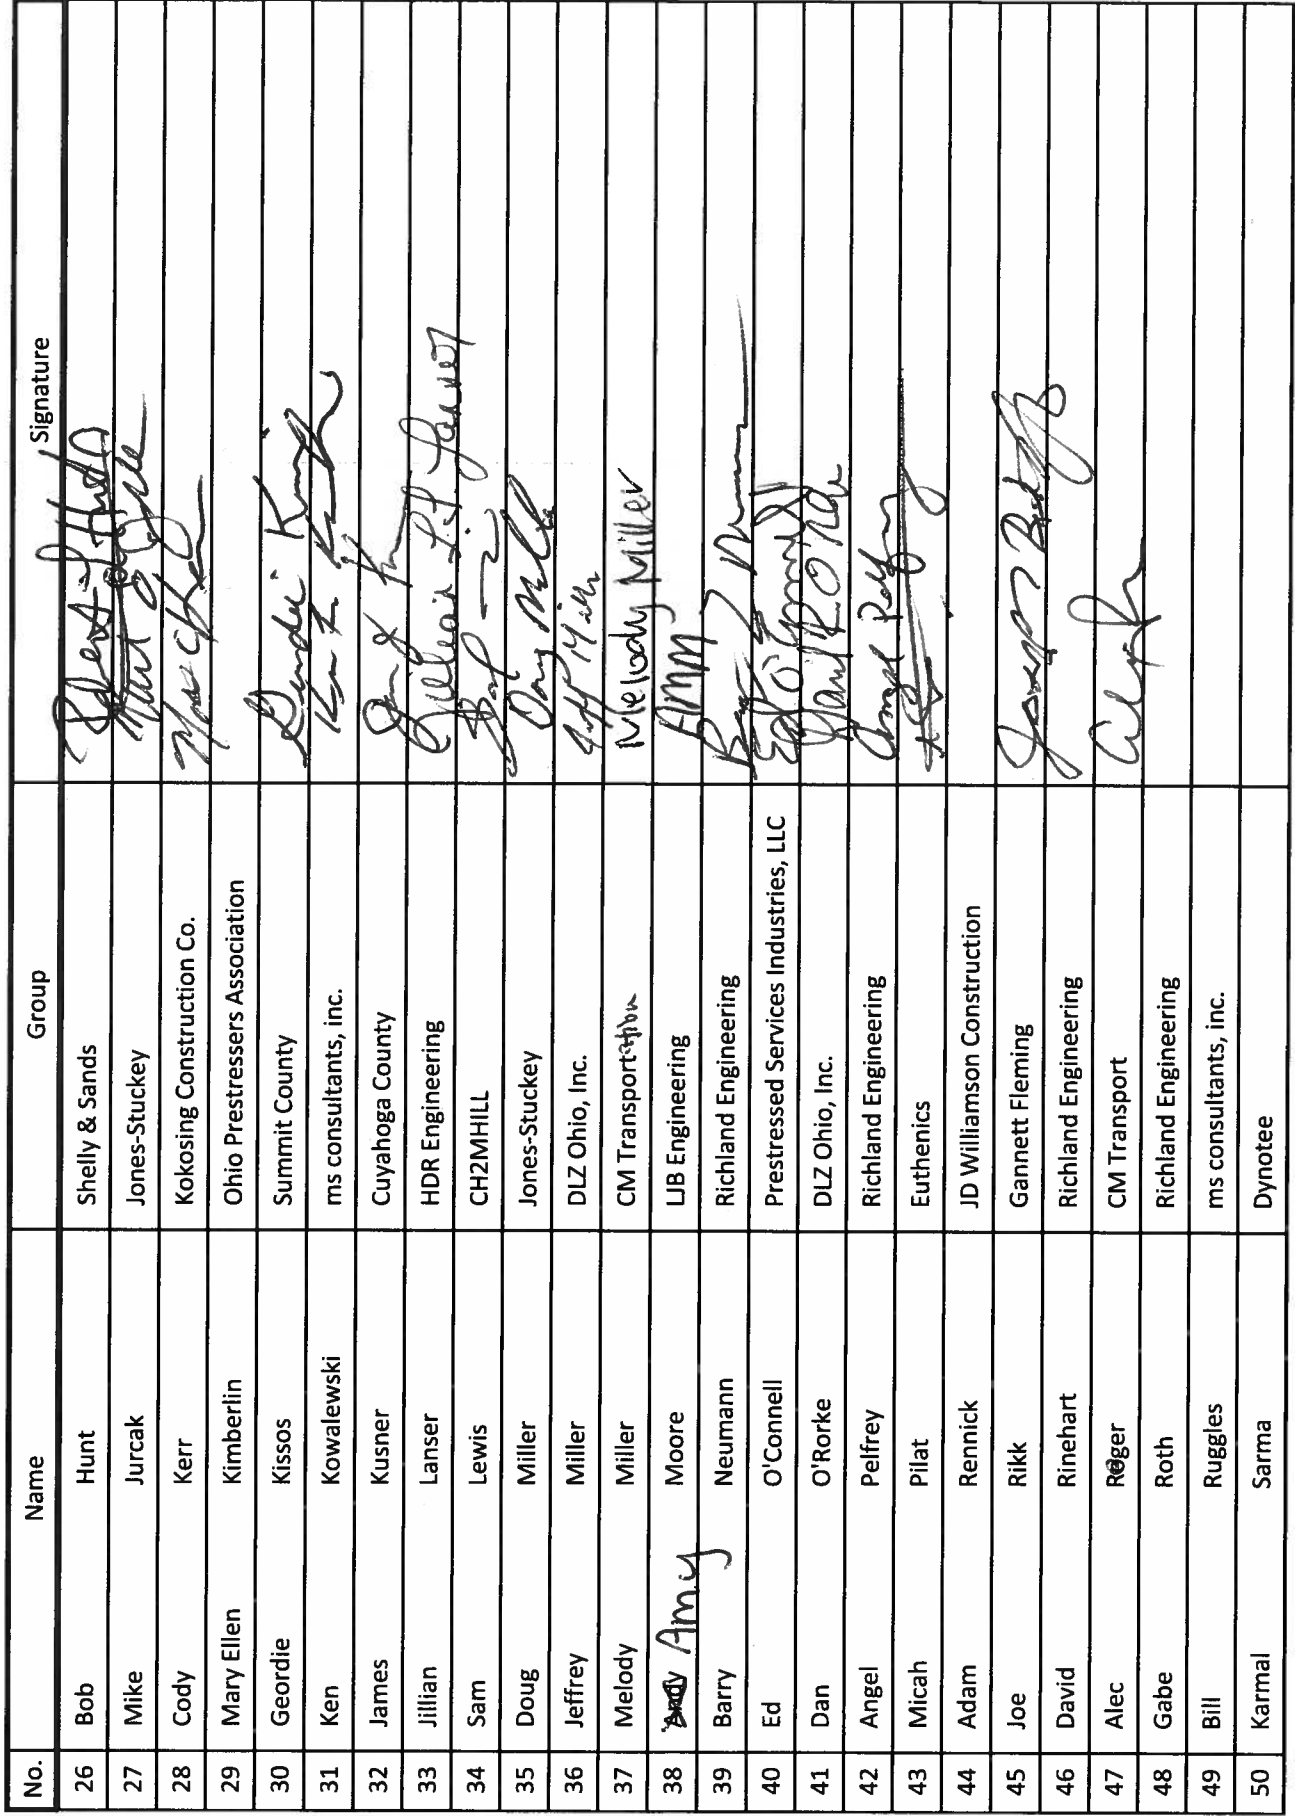 No. Name Group Signature
26 Bob Hunt Shelly & Sands Robert Hunt
27 Mike Jurcak Jones-Stuckey
28 Cody Kerr Kokosing Construction Co.
29 Mary Ellen Kimberlin Ohio Prestressers Association
30 Geordie Kissos Summit County
31 Ken Kowalewski ms consultants, inc.
32 James Kusner Cuyahoga County
33 Jillian Lanser HDR Engineering Jillian Lanser
34 Sam Lewis CH2MHILL
35 Doug Miller Jones-Stuckey Doug Miller
36 Jeffrey Miller DLZ Ohio, Inc. Jeff Miller
37 Melody Miller CM Transportation Melody Miller
38 Andy Amy Moore LJB Engineering AMM
39 Barry Neumann Richland Engineering
40 Ed O'Connell Prestressed Services Industries, LLC
41 Dan O'Rorke DLZ Ohio, Inc.
42 Angel Pelfrey Richland Engineering Angel Pelfrey
43 Micah Pilat Euthenics
44 Adam Rennick JD Williamson Construction
45 Joe Rikk Gannett Fleming
46 David Rinehart Richland Engineering
47 Alec CM Transport
48 Gabe Roth Richland Engineering
49 Bill Ruggles ms consultants, inc.
50 Karmal Sarma Dynotee